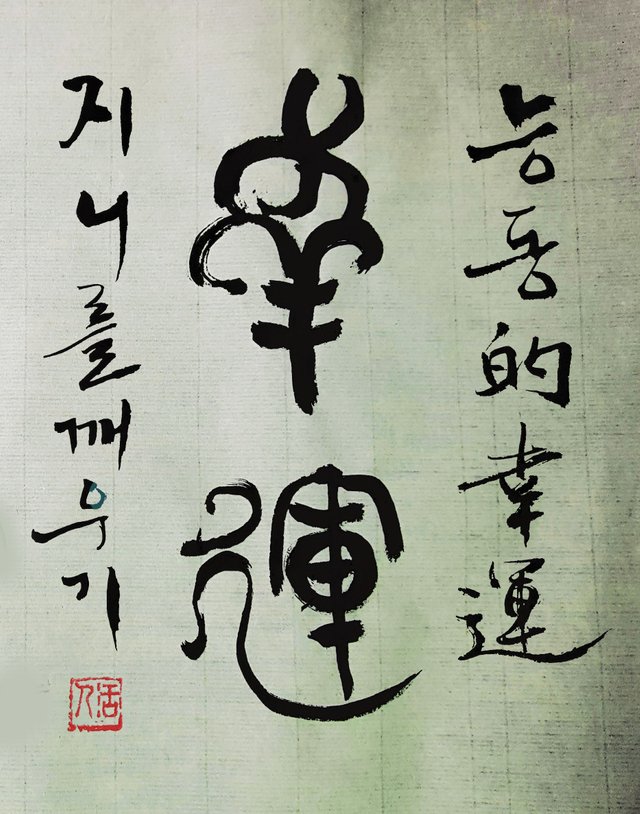 능동的幸運
幸運
지니를깨우기
活人